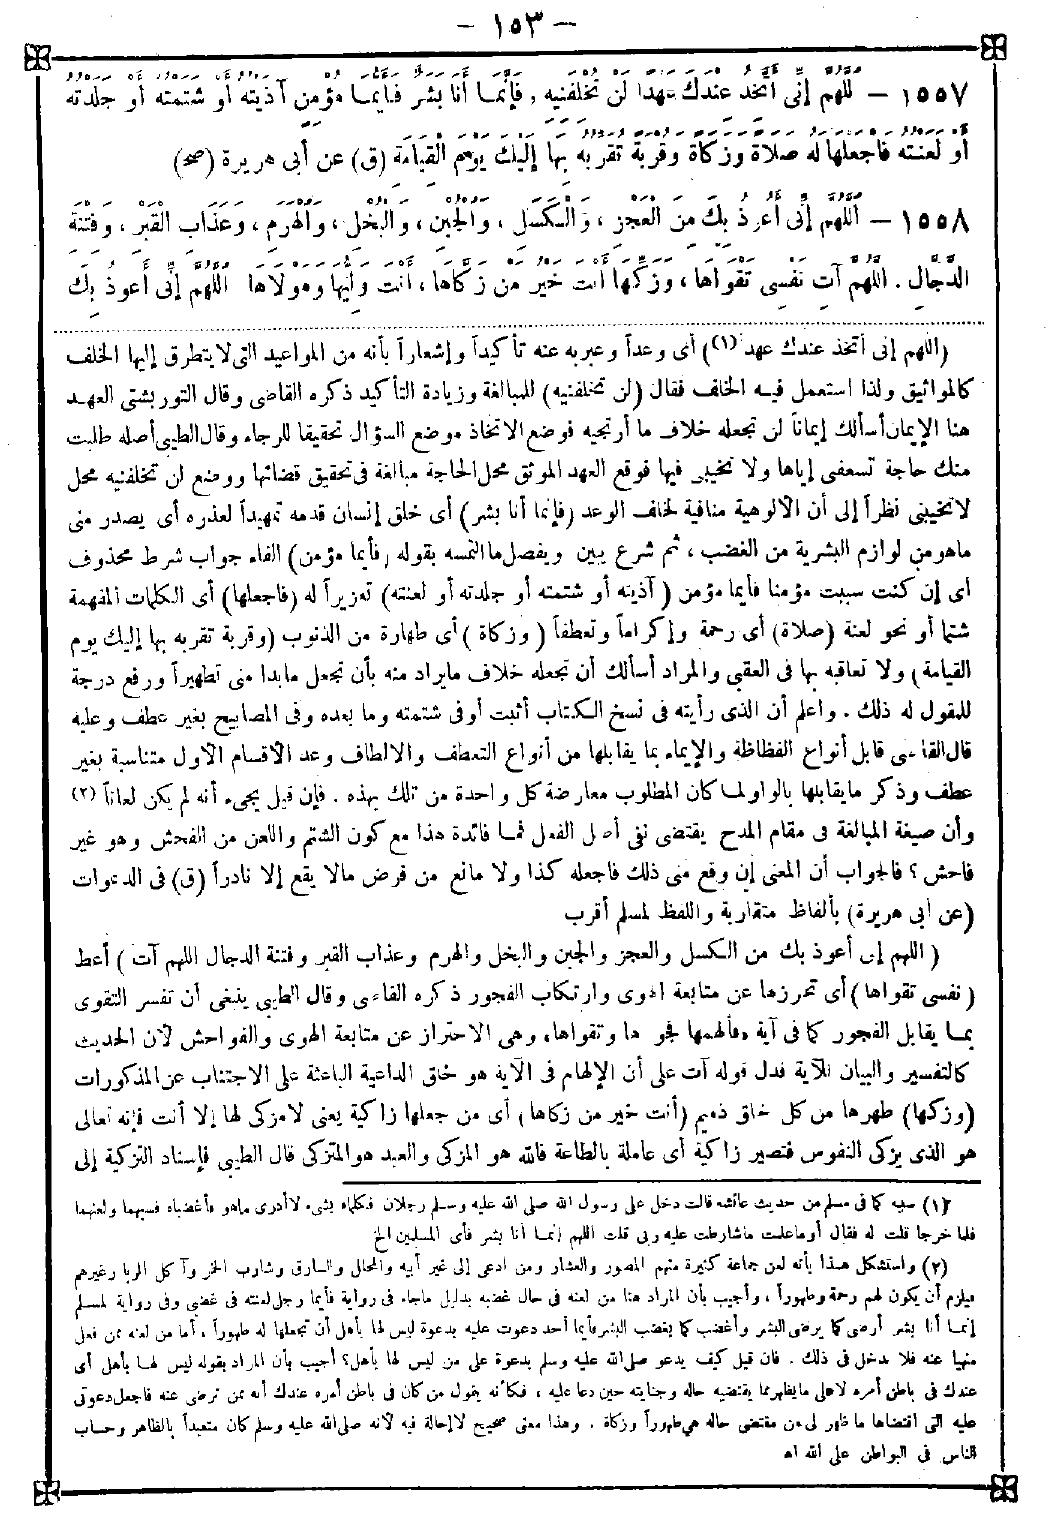 - ١٥٣ -
١٥٥٧ - اللَّهُمَّ إِنِّى أَتَّخِذُ عِنْدَكَ عَهْدًا لَنْ تُخْلِفَنِيهِ ، فَإِنَّمَا أَنَا بَشَرٌ فَأَيُّمَا مُؤْمِنٍ آذَيْتُهُ أَوْ شَتَمْتُهُ أَوْ جَلَدْتُهُ
أَوْ لَعَنْتُهُ فَاجْعَلْهَا لَهُ صَلَاةً وَزَكَاةً وَقُرْبَةً تُقَرِّبُهُ بِهَا إِلَيْكَ يَوْمَ الْقِيَامَةِ (ق) عن أبى هريرة (صح)
١٥٥٨ - اللَّهُمَّ إِنِّى أَعُوذُ بِكَ مِنَ الْعَجْزِ ، وَالْكَسَلِ ، وَالْجُبْنِ ، وَالْبُخْلِ ، وَالْهَرَمِ ، وَعَذَابِ الْقَبْرِ ، وَفِتْنَةِ
الدَّجَّالِ . اللَّهُمَّ آتِ نَفْسِى تَقْوَاهَا ، وَزَكِّهَا أَنْتَ خَيْرُ مَنْ زَكَّاهَا ، أَنْتَ وَلِيُّهَا وَمَوْلَاهَا اللَّهُمَّ إِنِّى أَعُوذُ بِكَ
(اللهم إنى أتخذ عندك عهد (١)) أى وعداً وعبر به عنه تأكيداً وإشعاراً بأنه من المواعيد التى لا يتطرق إليها الخلف
كالمواثيق ولذا استعمل فيه الخلف فقال (لن تخلفنيه) للمبالغة وزيادة التأكيد ذكره القاضى وقال التوربشتى العهد
هنا الإيمان أسألك إيماناً لن تجعله خلاف ما أرتجيه فوضع الاتخاذ موضع السؤال تحقيقا للرجاء وقال الطيبى أصله طلبت
منك حاجة تسعفنى إياها ولا تخيبنى فيها فوقع العهد الموثق محل الحاجة مبالغة فى تحقيق قضائها ووضع لن تخلفنيه محل
لا تخيبنى نظراً إلى أن الألوهية منافية لخلف الوعد (فإنما أنا بشر) أى خلق إنسان قدمه تمهيداً لعذره أى يصدر منى
ماهو من لوازم البشرية من الغضب ، ثم شرع يبين ويفصل ما التمسه بقوله (فأيما مؤمن) الفاء جواب شرط محذوف
أى إن كنت سببت مؤمنا فأيما مؤمن (آذيته أو شتمته أو جلدته أو لعنته) تعزيراً له (فاجعلها) أى الكلمات المفهمة
شتما أو نحو لعنة (صلاة) أى رحمة وإكراماً وتعطفاً (وزكاة) أى طهارة من الذنوب (وقربة تقربه بها إليك يوم
القيامة) ولا تعاقبه بها فى العقبى والمراد أسألك أن تجعله خلاف مايراد منه بأن تجعل مابدا منى تطهيراً ورفع درجة
للمقول له ذلك . واعلم أن الذى رأيته فى نسخ الكتاب أثبت أو فى شتمته وما بعده وفى المصابيح بغير عطف وعليه
قال القاضى قابل أنواع الفظاظة والإيماء بما يقابلها من أنواع التعطف والالطاف وعد الأقسام الأول متناسبة بغير
عطف وذكر مايقابلها بالواو لما كان المطلوب معارضة كل واحدة من تلك بهذه . فإن قيل يجىء أنه لم يكن لعاناً (٢)
وأن صيغة المبالغة فى مقام المدح يقتضى نفى أصل الفعل فما فائدة هذا مع كون الشتم واللعن من الفحش وهو غير
فاحش ؟ فالجواب أن المعنى إن وقع منى ذلك فاجعله كذا ولا مانع من فرض مالا يقع إلا نادراً (ق) فى الدعوات
(عن أبى هريرة) بألفاظ متقاربة واللفظ لمسلم أقرب
(اللهم إنى أعوذ بك من الكسل والعجز والجبن والبخل والهرم وعذاب القبر وفتنة الدجال اللهم آت) أعط
(نفسى تقواها) أى تحرزها عن متابعة الهوى وارتكاب الفجور ذكره القاضى وقال الطيبى ينبغى أن تفسر التقوى
بما يقابل الفجور كما فى آية «فألهمها فجورها وتقواها» وهى الاحتراز عن متابعة الهوى والفواحش لأن الحديث
كالتفسير والبيان للآية فدل قوله آت على أن الإلهام فى الآية هو خلق الداعية الباعثة على الاجتناب عن المذكورات
(وزكها) طهرها من كل خلق ذميم (أنت خير من زكاها) أى من جعلها زاكية يعنى لا مزكى لها إلا أنت فإنه تعالى
هو الذى يزكى النفوس فتصير زاكية أى عاملة بالطاعة فالله هو المزكى والعبد هو المتزكى قال الطيبى فإسناد التزكية إلى
(١) سببه كما فى مسلم من حديث عائشة قالت دخل على رسول الله صلى الله عليه وسلم رجلان فكلماه بشىء لا أدرى ماهو فأغضباه فسبهما ولعنهما
فلما خرجا قلت له فقال أوما علمت ماشارطت عليه ربى قلت اللهم إنما أنا بشر فأى المسلمين الخ
(٢) واستشكل هذا بأنه لعن جماعة كثيرة منهم المصور والعشار ومن ادعى إلى غير أبيه والمحال والسارق وشارب الخمر وآكل الربا وغيرهم
فيلزم أن يكون لهم رحمة وطهوراً ، وأجيب بأن المراد هنا من لعنه فى حال غضبه بدليل ماجاء فى رواية فأيما رجل لعنته فى غضبى وفى رواية لمسلم
إنما أنا بشر أرضى كما يرضى البشر وأغضب كما يغضب البشر فأيما أحد دعوت عليه بدعوة ليس لها بأهل أن تجعلها له طهوراً ، أما من لعنه ممن فعل
منهيا عنه فلا يدخل فى ذلك . فان قيل كيف يدعو صلى الله عليه وسلم بدعوة على من ليس لها بأهل؟ أجيب بأن المراد بقوله ليس لها بأهل أى
عندك فى باطن أمره لا على مايظهر مما يقتضيه حاله وجنايته حين دعا عليه ، فكأنه يقول من كان فى باطن أمره عندك أنه ممن ترضى عنه فاجعل دعوتى
عليه التى اقتضاها ما ظهر لى من مقتضى حاله هى طهوراً وزكاة . وهذا معنى صحيح لا إحالة فيه لأنه صلى الله عليه وسلم كان متعبداً بالظاهر وحساب
الناس فى البواطن على الله اه